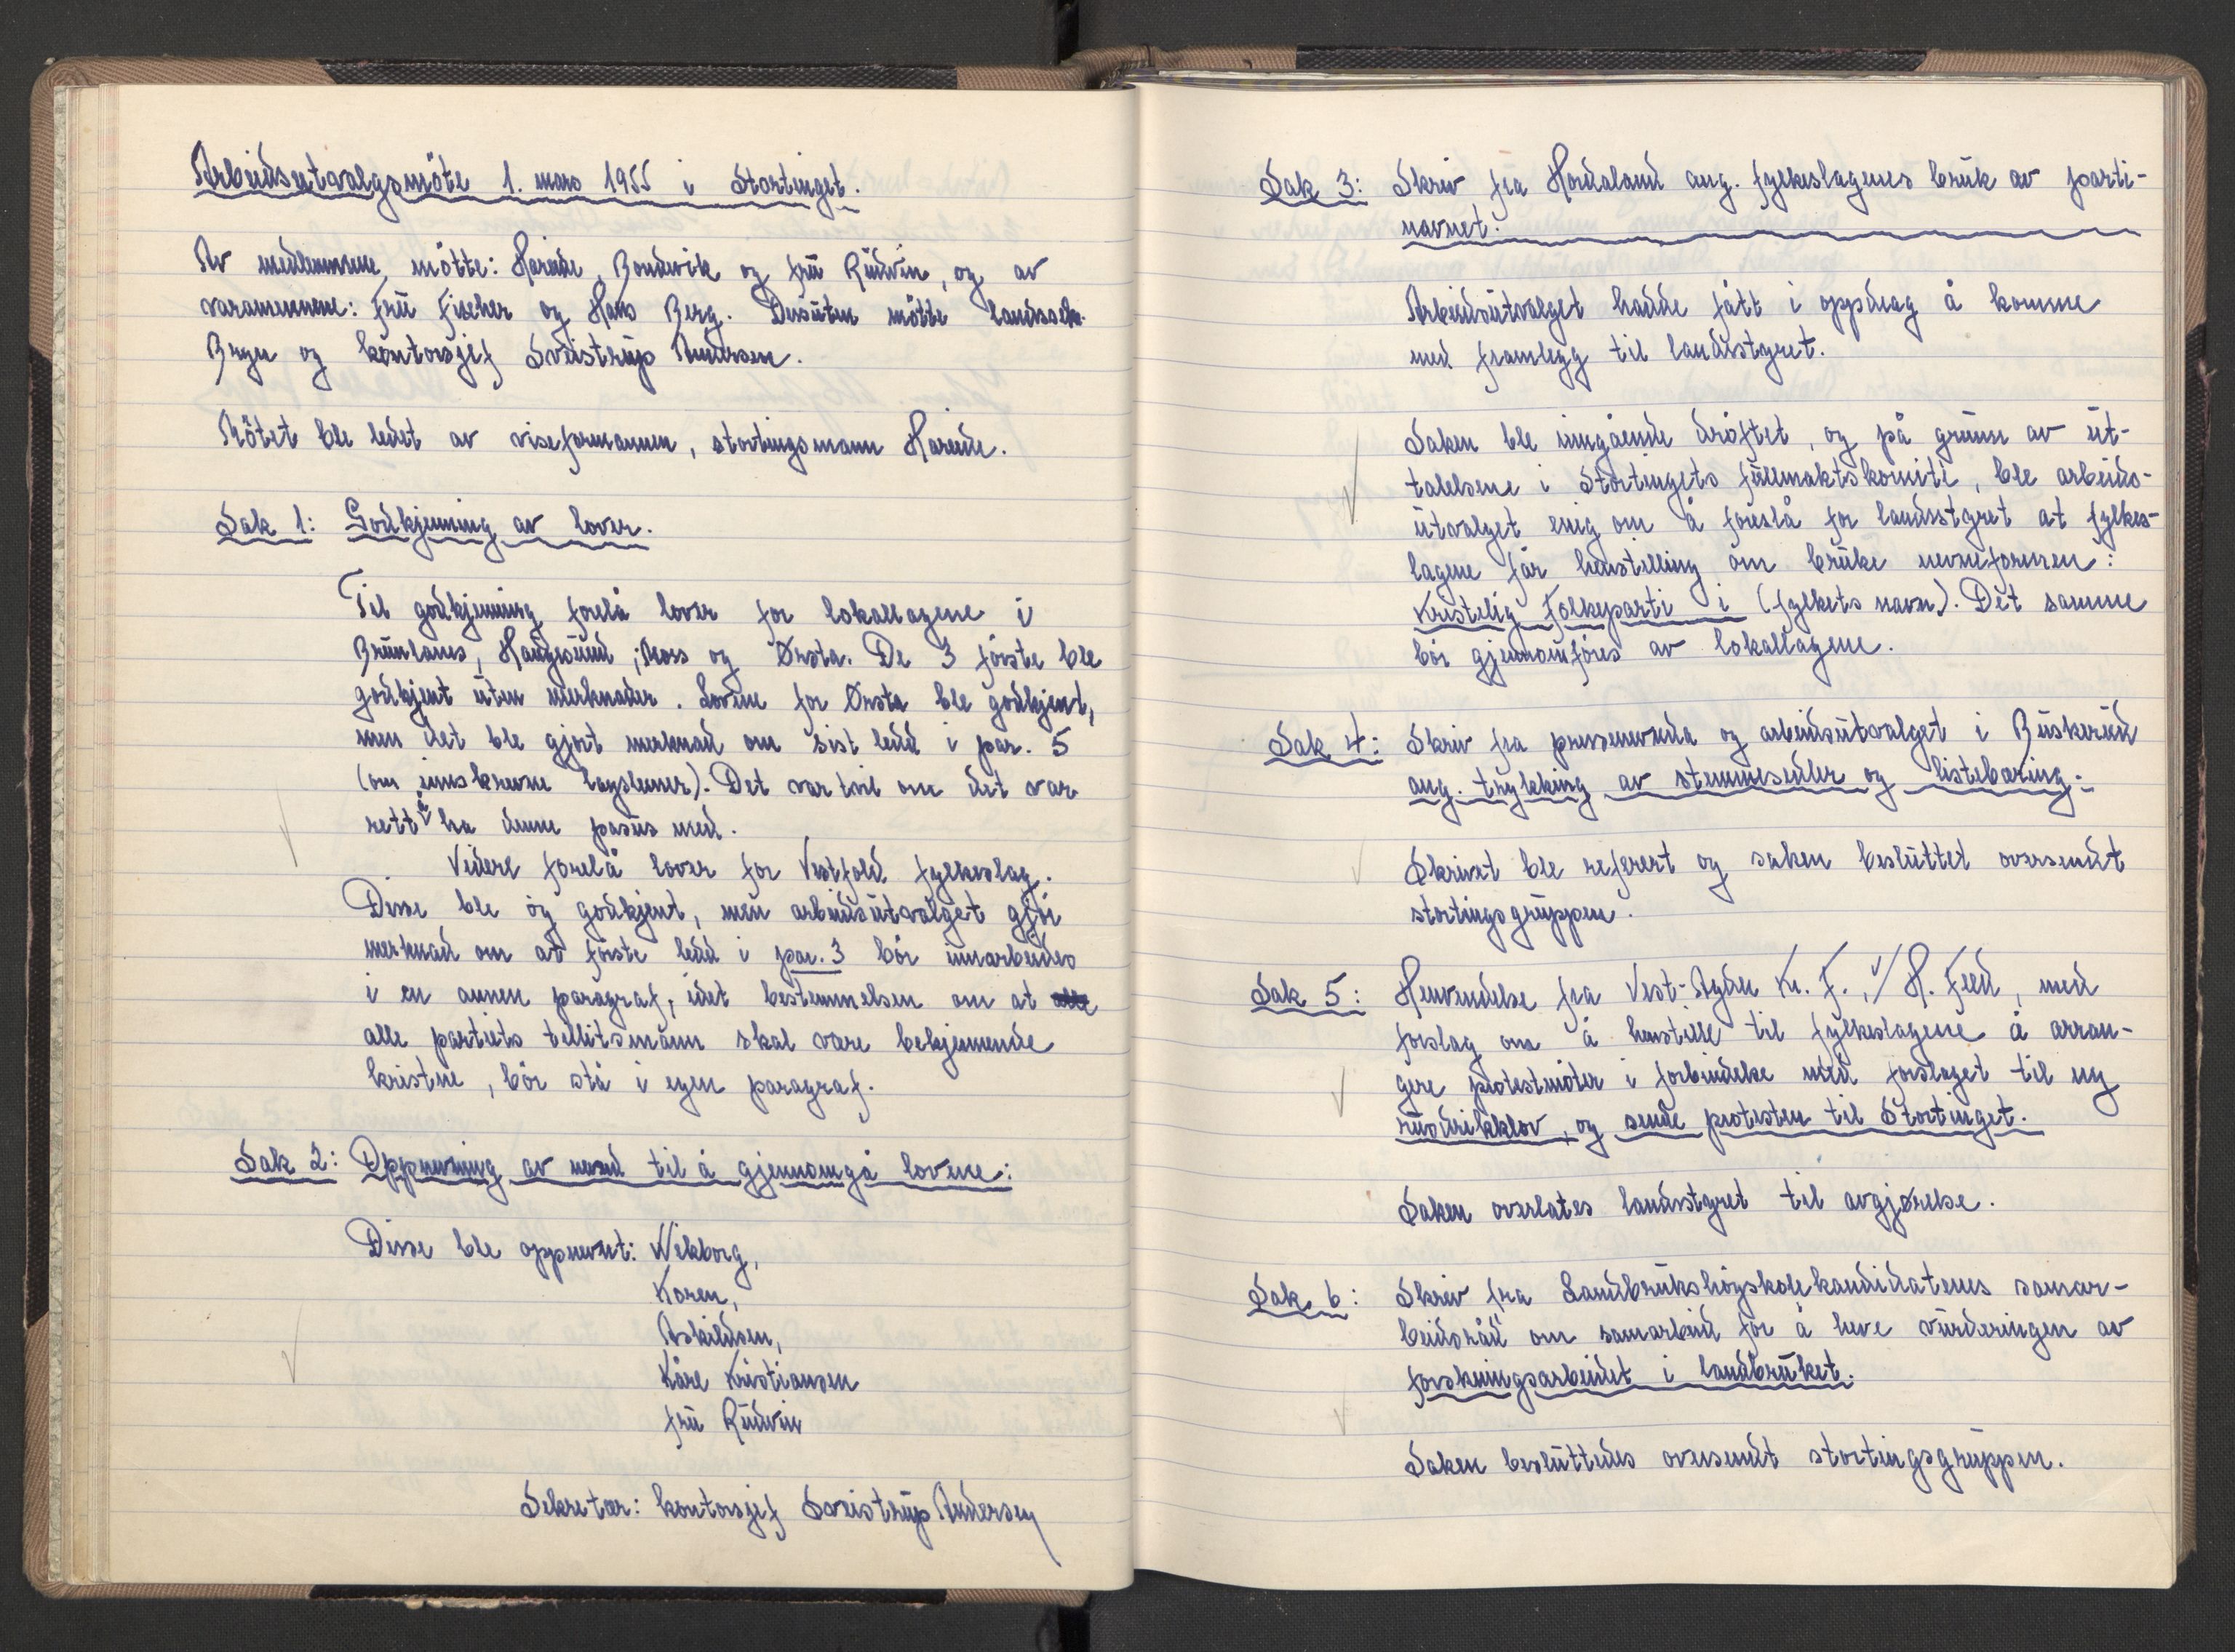 Arbeidsutvalgsmöte 1. mars 1955 i Stortinget.
Av medlemmene mötte: Hareide, Bondevik og fru Rudvin, og av
varamennene: Fru Fischer og Hans Berg. Dessuten mötte landssekr.
Bryn og kontorsjef Sveistrup Andersen.
Mötet ble ledet av viseformannen, stortingsmann Hareide.
Sak 1: Godkjenning av lover.
Til godkjenning forelå lover for lokallagene i
Brunlanes, Haugesund, Moss og Ørsta. De 3 förste ble
godkjent uten merknader. Lovene for Ørsta ble godkjent,
men det ble gjort merknad om sist ledd i par. 5
(om innskrevne lagslemer). Det var tvil om det var
rett å ha denne passus med.
Videre forelå lover for Vestfold fylkeslag.
Disse ble òg godkjent, men arbeidsutvalget gjör
merknad om at förste ledd i par. 3 bör innarbeides
i en annen paragraf, idet bestemmelsen om at alle
alle partiets tillitsmenn skal være bekjennende
kristne, bör stå i egen paragraf.
Sak 2: Oppnevning av nevnd til å gjennomgå lovene:
Disse ble oppnevnt: Wikborg,
Koren,
Askildsen,
Kåre Kristiansen
fru Rudvin
Sekretær: kontorsjef Sveistrup Andersen
Sak 3: Skriv fra Hordaland ang. fylkeslagenes bruk av parti-
navnet.
Arbeidsutvalget hadde fått i oppdrag å komme
med framlegg til landsstyret.
Saken ble inngående dröftet, og på grunn av ut-
talelsene i Stortingets fullmaktskomité, ble arbeids-
utvalget enig om å foreslå for landsstyret at fylkes-
lagene får henstilling om bruke nevneformen:
Kristelig Folkeparti i (fylkets navn). Det samme
bör gjennomföres av lokallagene.
Sak 4: Skriv fra pressenevnda og arbeidsutvalget i Buskerud
ang. trykking av stemmesedler og listebæring.
Skrivet ble referert og saken besluttet oversendt
stortingsgruppen.
Sak 5: Henvendelse fra Vest-Agder Kr. F., v/ H. Feed, med
forslag om å henstille til fylkeslagene å arran-
gere protestmöter i forbindelse med forslaget til ny
rusdrikklov, og sende protesten til Stortinget.
Saken overlates landsstyret til avgjørelse.
Sak 6: Skriv fra Landbrukshögskolekandidatenes samar-
beidsråd om samarbeid for å heve vurderingen av
forskningsarbeidet i landbruket.
Saken besluttedes oversendt stortingsgruppen.